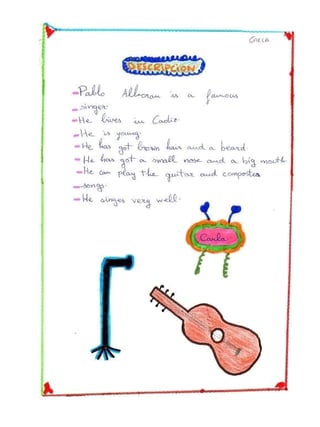 CARLA
DESCRIPCIÓN
-Pablo Alboran is a famous
-singer.
-He lives in Cadiz.
-He is young.
-He has got brown hair and a beard.
-He has got a small nose and a big mouth.
-He can play the guitar and composites
-songs.
-He singes very well.
Carla